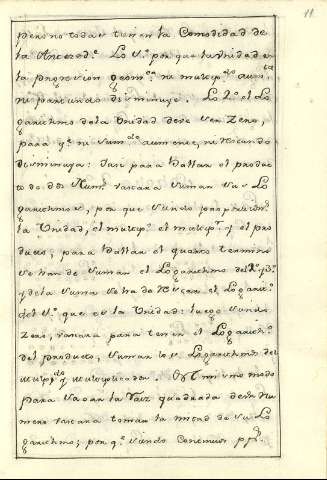 11.
pero no todas tienen la Comodidad de
la Antezed.te Lo 1.º por que la Unidad en
la progresion Geom.ca ni multip.do aum.ta
ni partiendo disminuye. Lo 2.º el Lo
garithmo dela Unidad deve ser Zero,
para q.e ni sum.do aumente, ni restando
disminuya: Pues para hallar el produc
to de dos Num.s bastara sumar sus Lo
garithmos, por que siendo
la Unidad, el multip.r el multip.do y el pro
ducto, para hallar el quarto termino
se han de sumar el Logarithmo del 2.º y 3.º
y de la suma se ha de restar el Logarit.º
del 1.º que es la Unidad: luego siendo
Zero, bastara para tener el Logarith.º
del producto, sumar los Logarithmos del
multip.r y multiplicador. Del mismo modo
para sacar la raiz quadrada de un Nu
mero bastara tomar la mitad de su Lo
garithmo; por q.e siendo Continuos